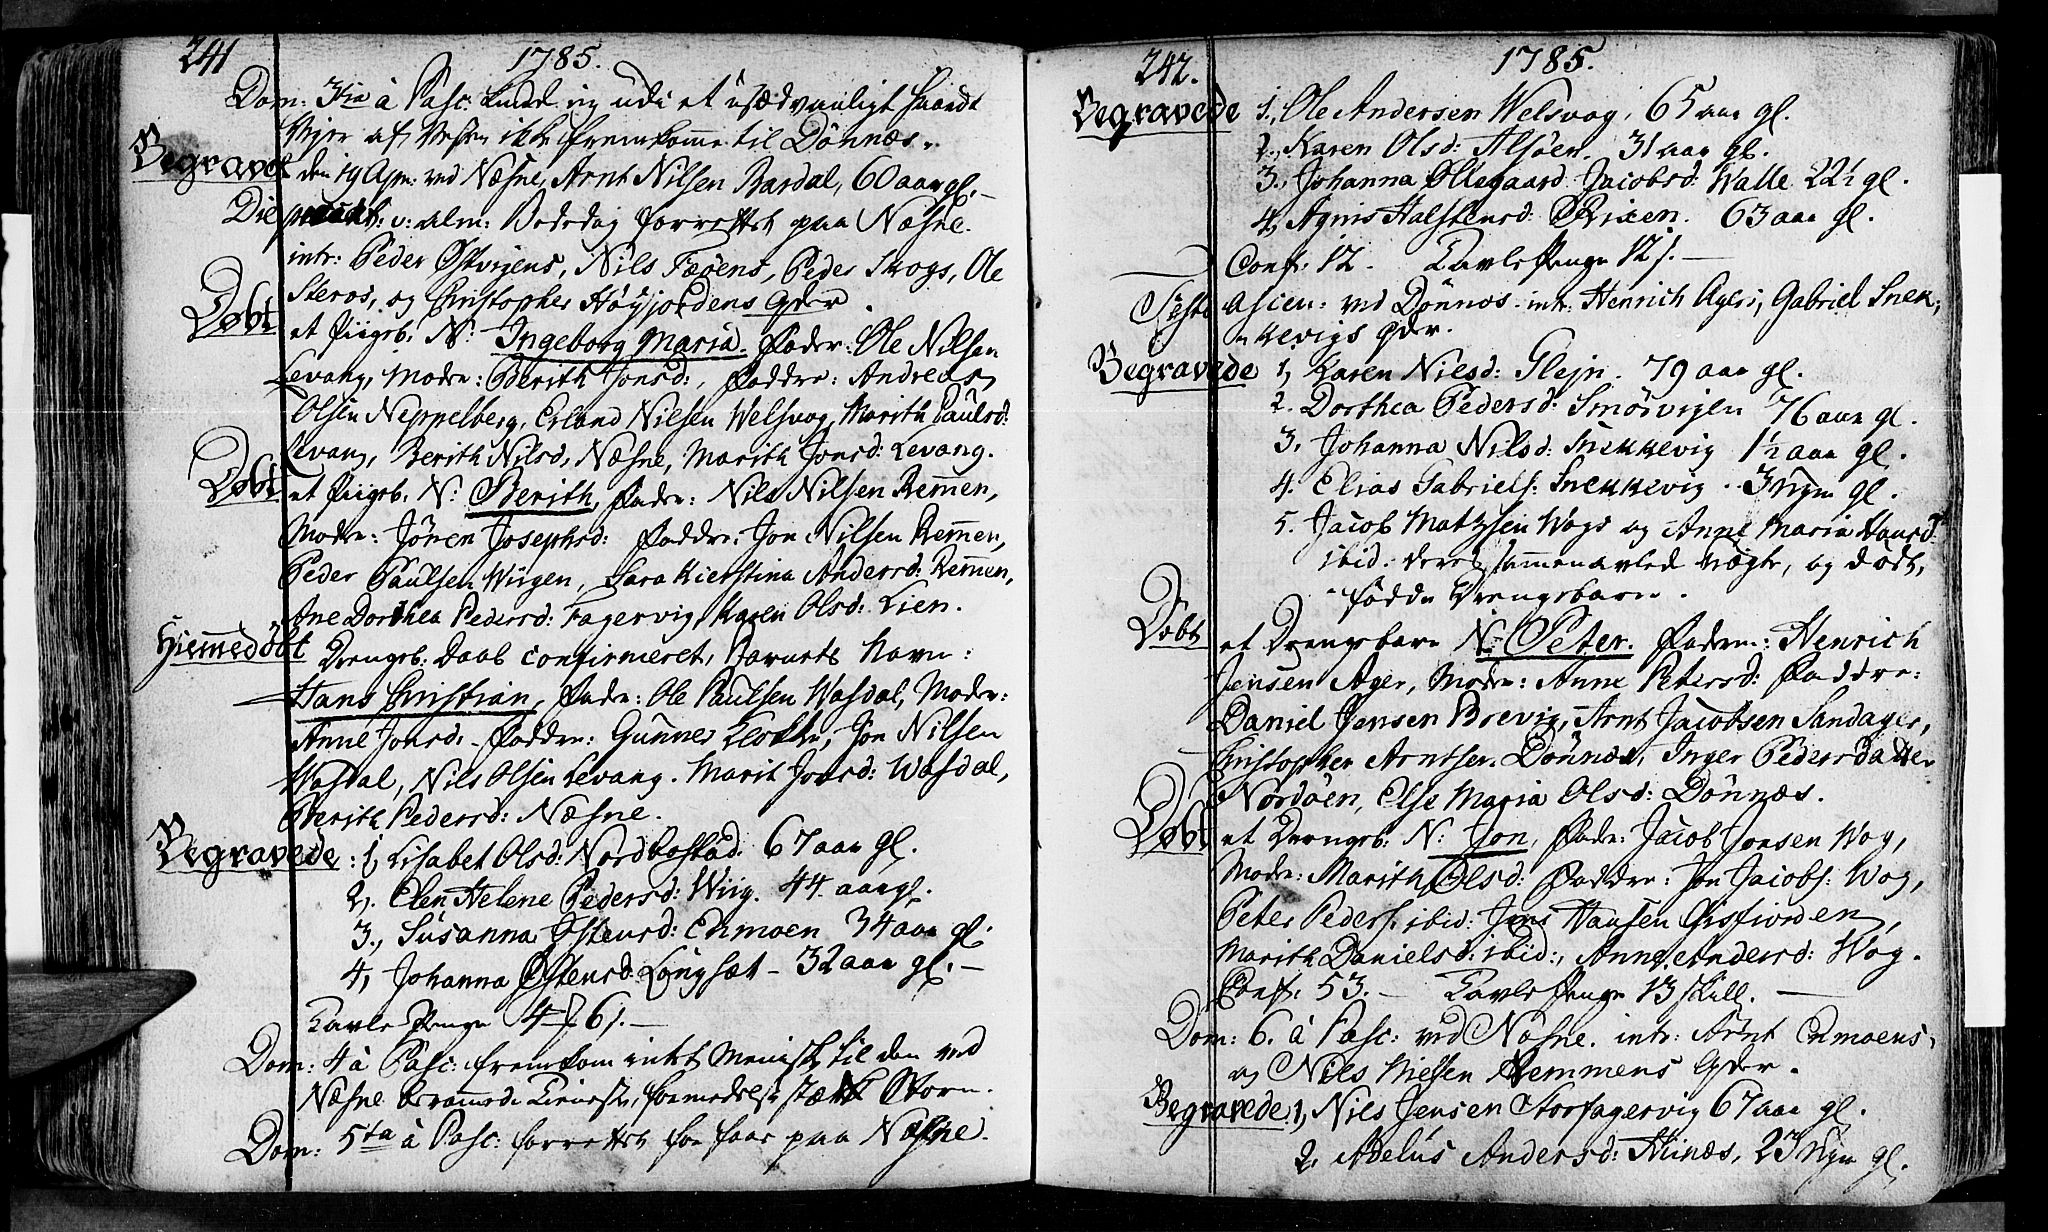 241
1785.
Dom: 3tia à Pasc: kunde jeg udi et usædvaanligt haardt
Vejer af Vesten ikke fremkomme til Dönnæs.
Begravet den 19 Apr: ved Næsne, Arnt Nilsen Bardal, 60 aar gl. -
Die v: alm: Bededag forrettet paa Næsne.
intr: Peder Østvigens, Nils Fæøens, Peder Skogs, Ole
Steros, og Christopher Høyjordens Qder.
Døbt et Piigeb. N: Ingeborg Maria. Fader: Ole Nilsen
Levang, Moder: Berith Jonsd:, Faddre: Andreas
Olsen Neppelberg, Erland Nilsen Welsvog, Marith Paulsd:
Levang, Berith Nilsd, Næsne, Marith Jonsd: Levang.
Døbt et Piigeb. N: Berith, Fader: Nils Nilsen Remmen,
Moder: Jören Josephsd: Faddre: Jon Nilsen Remmen,
Peder Paulsen Wiigen, Sara Kierstina Andersd: Remmen,
Ane Dorthea Pedersd: Fagervig, Karen Olsd: Lien.
Hiemmedöbt Drengeb: Daab confirmeret, Barnets Navn:
Hans Christian, Fader: Ole Paulsen Wasdal, Moder:
Anne Jonsd: - Faddre: Gunner Klokke, Jon Nilsen
Wasdal, Nils Olsen Levang. Marit Jonsd: Wasdal,
Berith Pedersd: Næsne.
Begravede: 1, Lisabet Olsd: Nordbostad. 67 aar gl.
2, Elen Helene Pedersd: Wiig. 44 aar gl.
3., Susanna Østensd: Enmoen 34 aar gl.
4, Johanna Østensd: Longsæt - 32 aar gl. -
Tavle Penge 4 6 /. -
Dom: 4 à Pasc: fremkom intet Menisk til den ved
Næsne berammede Tieneste, formedelst stærk Storm.
Dom: 5ta à Pasc: forrettet for faae paa Næsne.
242.
1785.
Begravede 1., Ole Andersen Welsvog, 65 aar gl.
2., Karen Olsd: Alsøen. 31 aar gl.
3., Johanna Øllegaard Jacobsd: Walle 22½ gl.
4, Agnis Halstensd: 63 aar gl.
Conf: 12. Tavle Penge 12 /. -
Festo Ascen: ved Dönnes. intr: Henrich Agers, Gabriel Snek-
kevigs Qder.
Begravede 1, Karen Nilsd: Glejn. 79 aar gl.
2. Dorthea Pedersd: Smörvigen 76 aar gl.
3, Johanna Nilsd: Snekkevig 1½ aar gl.
4. Elias Gabriels: Snekkevig. 3 gl.
5. Jacob Matzsen Wogs og Anne Maria Hansd:
ibid: deres sammenavlede uægte, og död-
födde Drengebarn.
Döbt et Drengebarn N: Peter. Faderen: Henrich
Jensen Ager, Moder: Anne Petersd: Faddre:
Daniel Jensen Brevig, Arnt Jacobsen Sandager,
Christopher Arntsen Dönnes, Inger Pedersdatter
Nordöen, Else Maria Olsd: Dönnæs.
Döbt et Drengeb: N: Jon, Fader: Jacob Jonsen Wog,
Moder: Marith Olsd: Faddre: Jon Jacobs: Wog,
Peter Peders: ibid: Jens Hansen Gisfiorden,
Marith Danielsd: ibid:, Anne Andersd: Wog.
Conf: 53. - Tavle Penge 13 skill. -
Dom: 6. à Pasc: ved Næsne. intr: Arnt Enmoens,
og Nils Nielsen Hemmens Qder.
Begravede 1, Nils Jensen Storfagervig 67 aar gl.
2. Adelus Andersd: 23 gl.